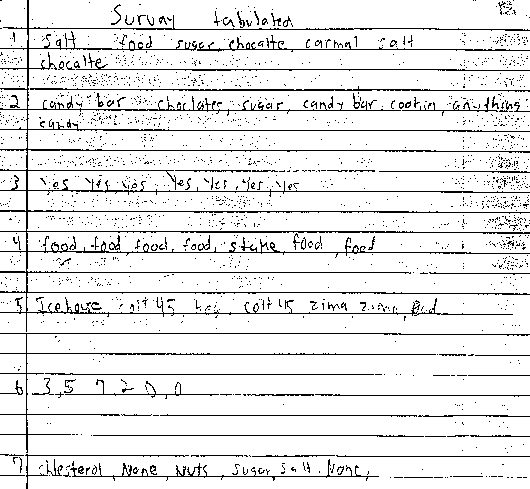 Survay tabulated
1 Salt food sugar, chocalte, carmal salt
chocalte
2 candy bar choclates, sugar, candy bar, cookin, anything
candy
3 Yes, yes, yes, Yes, Yes, Yes, Yes
4 food, food, food, food, stake, food, food
5 Icehouse, colt 45, colt 45 zima zima, Bud
6 3, 5 7, 2 0, 0
7 chlesterol, None, Nuts, Sugar, Salt, None,